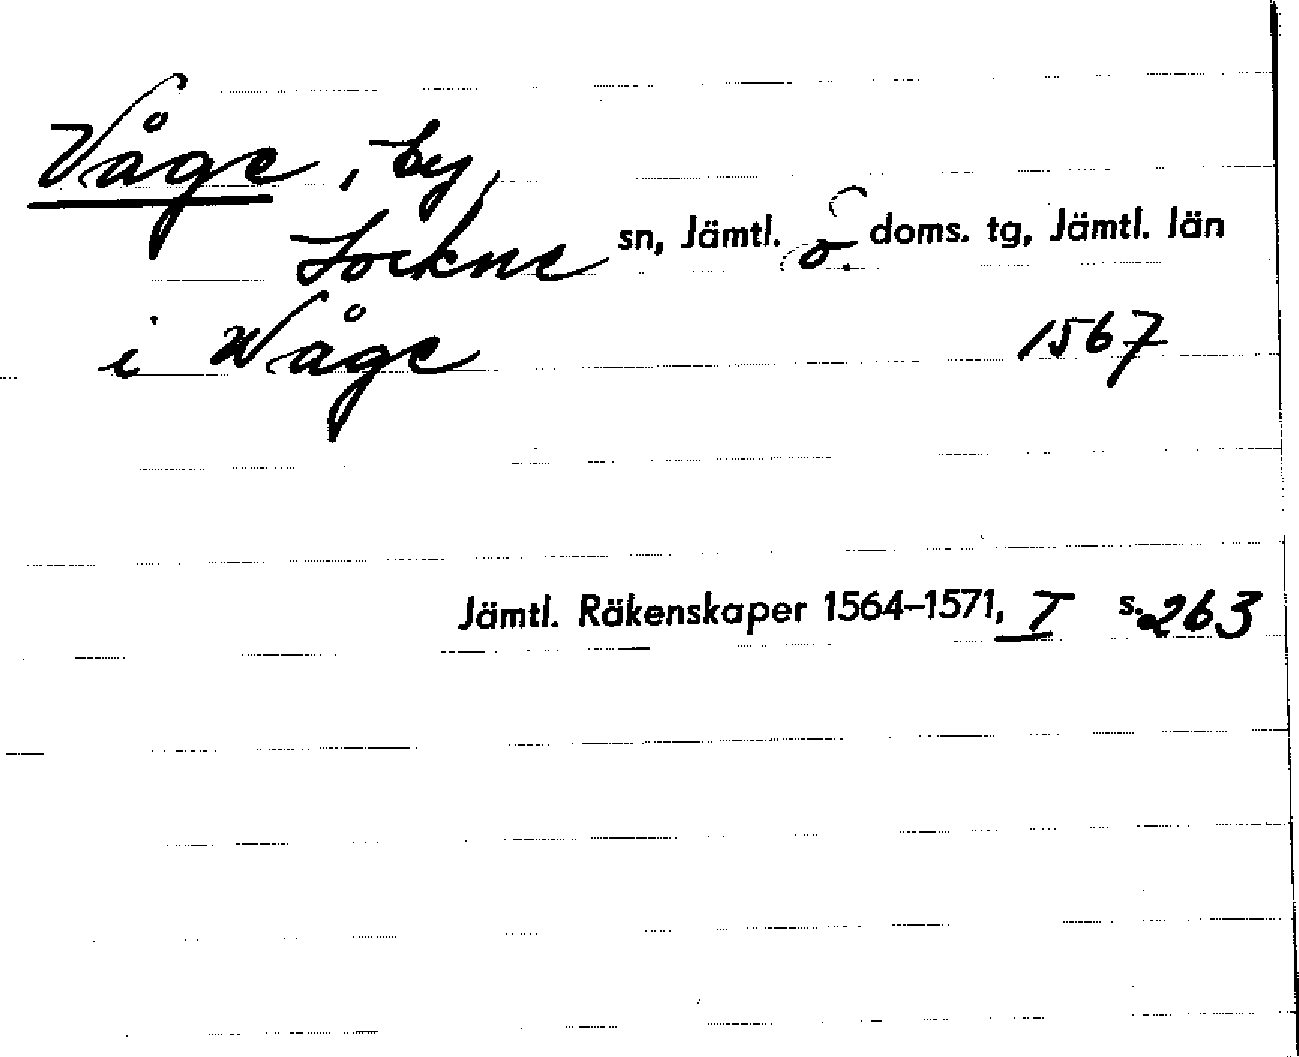 Våge, by,
Lockne sn, Jämtl. ö. doms. tg, Jämtl. län
i Wåge 1567
Jämtl. Räkenskaper 1564–1571, I s. 263